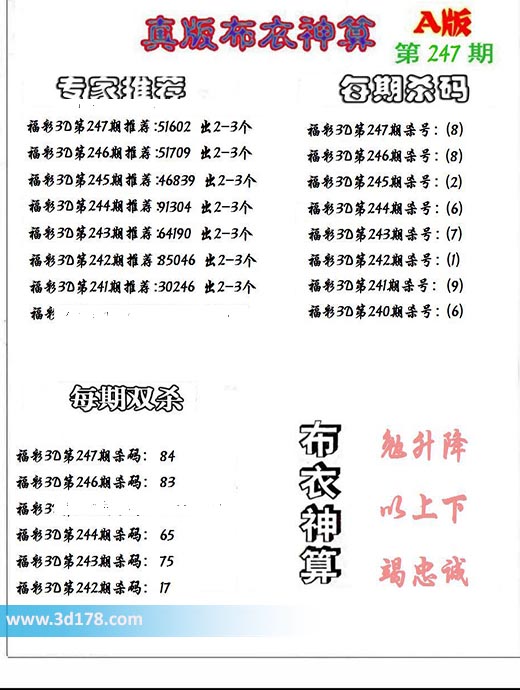 真版布衣神算
A版
第 247 期
专家推荐
福彩3D第247期推荐:51602 出2-3个
福彩3D第246期推荐:51709 出2-3个
福彩3D第245期推荐:46839 出2-3个
福彩3D第244期推荐:91304 出2-3个
福彩3D第243期推荐:64190 出2-3个
福彩3D第242期推荐:85046 出2-3个
福彩3D第241期推荐:30246 出2-3个
福彩
每期杀码
福彩3D第247期杀号：(8)
福彩3D第246期杀号：(8)
福彩3D第245期杀号：(2)
福彩3D第244期杀号：(6)
福彩3D第243期杀号：(7)
福彩3D第242期杀号：(1)
福彩3D第241期杀号：(9)
福彩3D第240期杀号：(6)
每期双杀
福彩3D第247期杀码： 84
福彩3D第246期杀码： 83
福彩3
福彩3D第244期杀码： 65
福彩3D第243期杀码： 75
福彩3D第242期杀码： 17
布衣神算
勉升降
以上下
竭忠诚
www.3d178.com